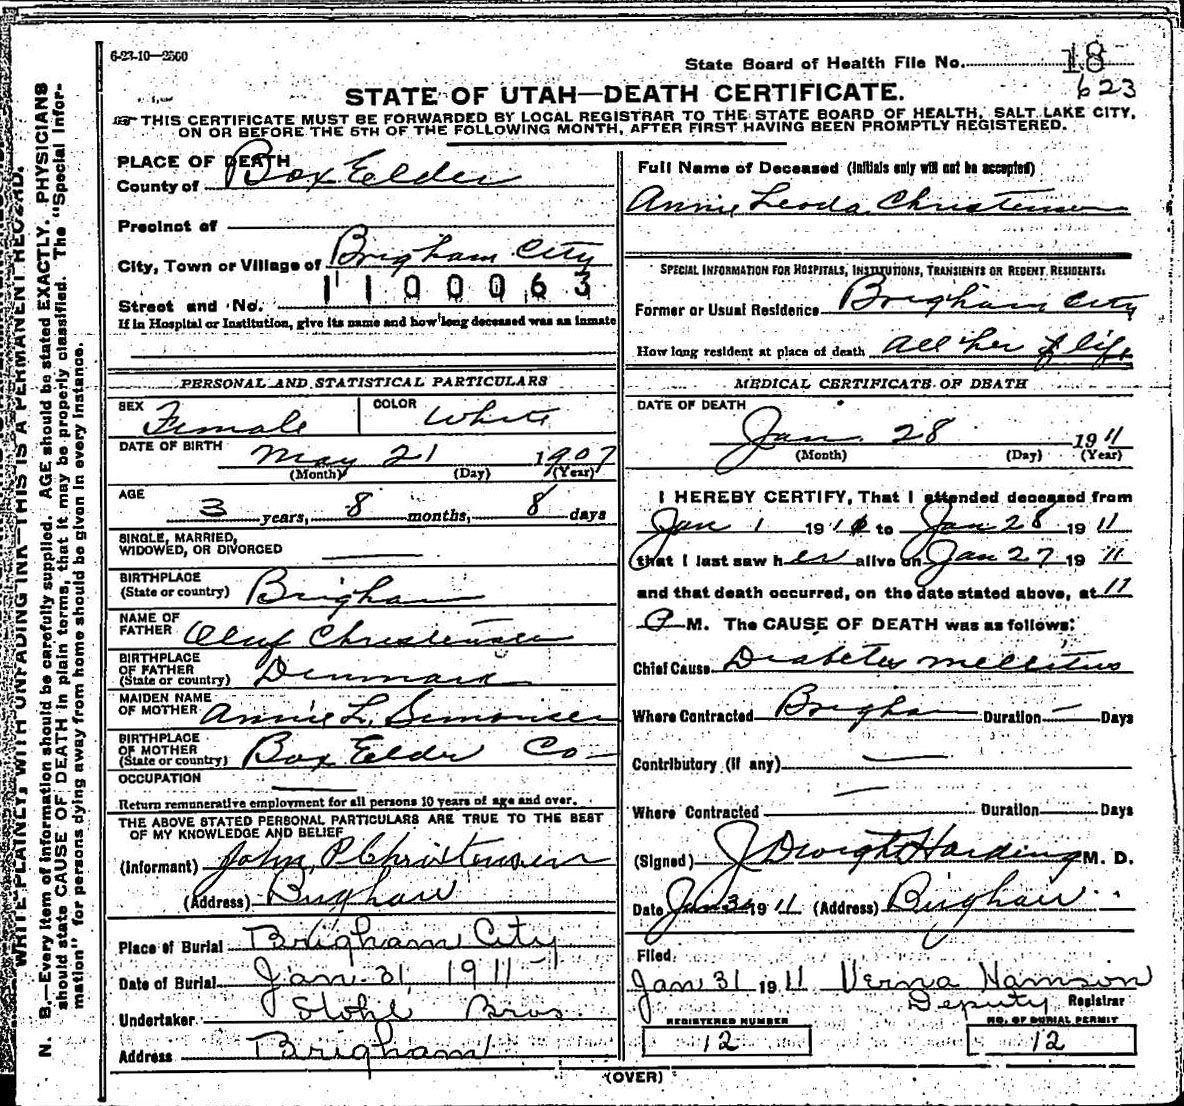 6-23-10—2500
State Board of Health File No. 18
623
STATE OF UTAH—DEATH CERTIFICATE.
THIS CERTIFICATE MUST BE FORWARDED BY LOCAL REGISTRAR TO THE STATE BOARD OF HEALTH, SALT LAKE CITY,
ON OR BEFORE THE 5TH OF THE FOLLOWING MONTH, AFTER FIRST HAVING BEEN PROMPTLY REGISTERED.
PLACE OF DEATH
County of Box Elder
Precinct of
City, Town or Village of Brigham City
1100063
Street and No.
If in Hospital or Institution, give its name and how long deceased was an inmate
PERSONAL AND STATISTICAL PARTICULARS
SEX Female COLOR White
DATE OF BIRTH May 21 1907
(Month) (Day) (Year)
AGE
3 years, 8 months, 8 days
SINGLE, MARRIED,
WIDOWED, OR DIVORCED
BIRTHPLACE
(State or country) Brigham
NAME OF
FATHER Oluf Christensen
BIRTHPLACE
OF FATHER
(State or country) Denmark
MAIDEN NAME
OF MOTHER Annie L. Simonsen
BIRTHPLACE
OF MOTHER
(State or country) Box Elder Co—
OCCUPATION
Return remunerative employment for all persons 10 years of age and over.
THE ABOVE STATED PERSONAL PARTICULARS ARE TRUE TO THE BEST
OF MY KNOWLEDGE AND BELIEF
(Informant) John P Christensen
(Address) Brigham
Place of Burial Brigham City
Date of Burial Jan. 31, 1911
Undertaker Stohl Bros
Address Brigham
Full Name of Deceased (Initials only will not be accepted)
Annie Leoda Christensen
SPECIAL INFORMATION FOR HOSPITALS, INSTITUTIONS, TRANSIENTS OR RECENT RESIDENTS.
Former or Usual Residence Brigham City
How long resident at place of death All her life
MEDICAL CERTIFICATE OF DEATH
DATE OF DEATH
Jan. 28 1911
(Month) (Day) (Year)
I HEREBY CERTIFY, That I attended deceased from
Jan 1 191 to Jan 28 1911
that I last saw her alive on Jan 27 1911
and that death occurred, on the date stated above, at 11
P M. The CAUSE OF DEATH was as follows:
Chief Cause Diabetes mellitus
Where Contracted Brigham Duration — Days
Contributory (if any)
Where Contracted Duration Days
(Signed) J Dwight Harding M. D.
Date Jan 30 1911 (Address) Brigham
Filed
Jan 31 1911 Verna Hamson
Deputy Registrar
REGISTERED NUMBER
12
NO. OF BURIAL PERMIT
12
(OVER)
WRITE PLAINLY, WITH UNFADING INK—THIS IS A PERMANENT RECORD.
N. B.—Every item of information should be carefully supplied. AGE should be stated EXACTLY. PHYSICIANS
should state CAUSE OF DEATH in plain terms, that it may be properly classified. The "Special Infor-
mation" for persons dying away from home should be given in every instance.